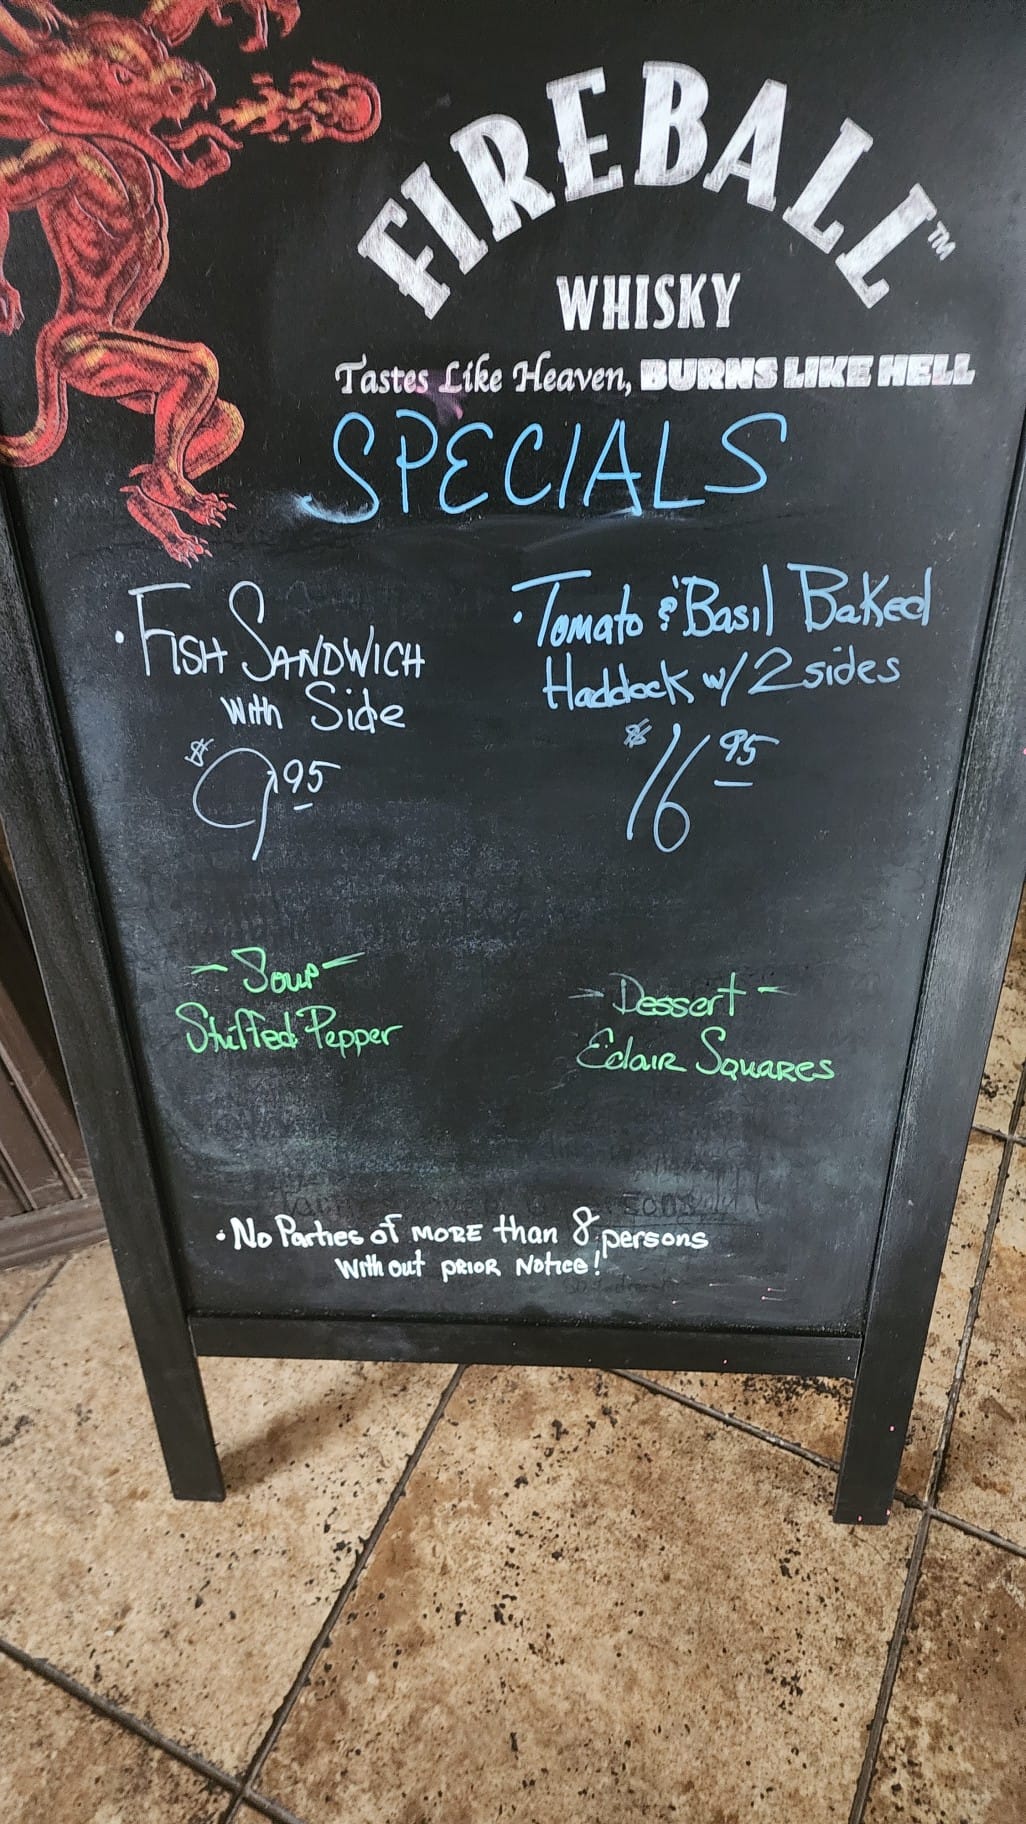 FIREBALL™
WHISKY
Tastes Like Heaven, BURNS LIKE HELL
SPECIALS
• FISH SANDWICH
with Side
$9.95
• Tomato & Basil Baked
Haddock w/ 2 sides
$16.95
- Soup -
Stuffed Pepper
- Dessert -
Eclair Squares
• No Parties of MORE than 8 persons
without prior Notice!